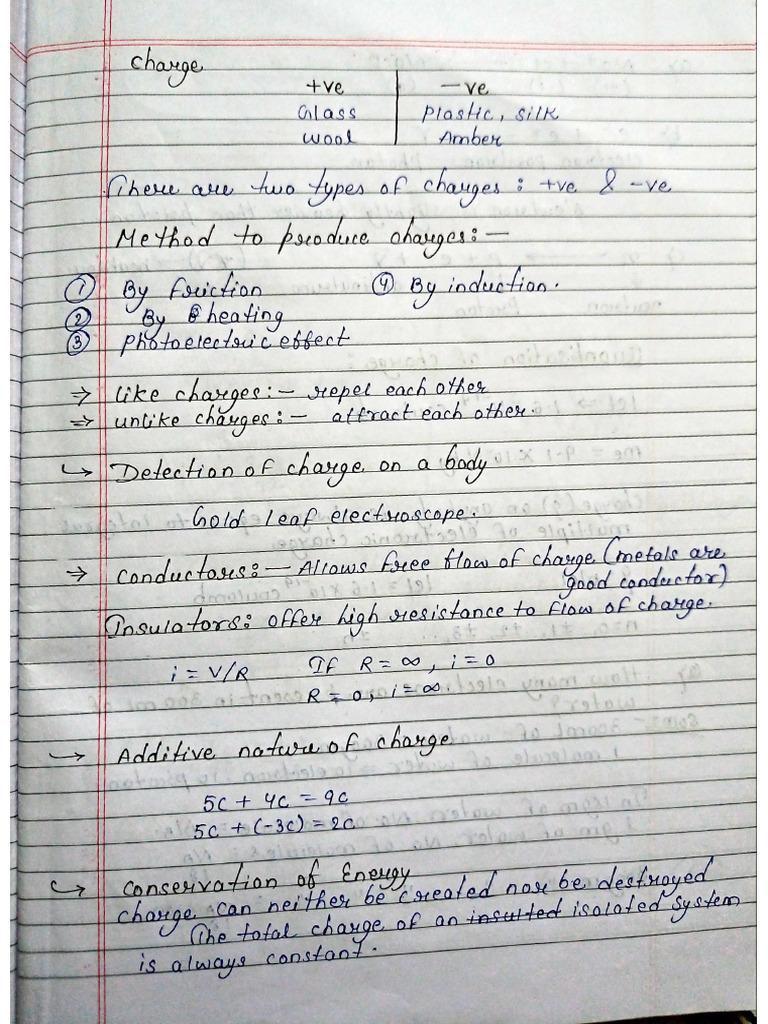 Charge
+ve | -ve
Glass | Plastic, silk
Wool | Amber
There are two types of charges : +ve & -ve
Method to produce charges:-
① By friction ④ By induction.
② By heating
③ Photoelectric effect
⇒ Like charges:- repel each other
⇒ unlike charges:- attract each other.
↳ Detection of charge on a body
Gold leaf electroscope.
⇒ Conductors:- Allows free flow of charge (metals are
good conductor)
Insulators: offer high resistance to flow of charge.
i = V/R If R = ∞, i = 0
R = 0, i = ∞.
↳ Additive nature of charge
5C + 4C = 9C
5C + (-3C) = 2C
↳ Conservation of Energy
charge can neither be created nor be destroyed
The total charge of an insulted isolated system
is always constant.